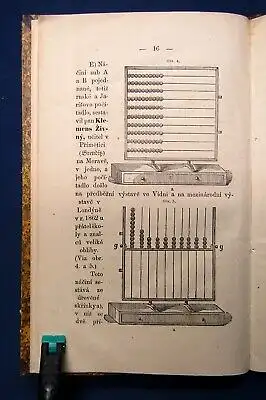 — 16 —
E) Ná-
činí sub A
a B pojed-
nané, totiž
ruské a Ja-
ritovo počí-
tadlo, sesta-
vil pan Kle-
mens Živ-
ný, učitel v
Přímětici
na Moravě,
v jedno, a
jeho počí-
tadlo došlo
na předběžní výstavě ve Vídni a na mezinárodní vý-
stavě v
Londýně
v r. 1862 u
přátel ško-
ly a znal-
ců veliké
obliby.
(Viz obr.
4. a 5.)
Toto
náčiní se-
stává ze
dřevěné
skříňky a),
v níž se
dvě pří-